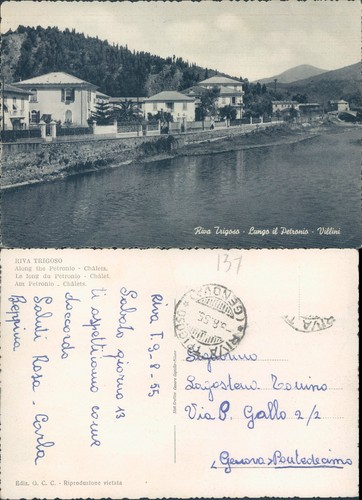 Riva Trigoso - Lungo il Petronio - Villini
RIVA TRIGOSO
Along the Petronio - Châlets.
Le long du Petronio - Châlet.
Am Petronio, Châlets.
131
Riva T. 9-8-55
Sabato giorno 13
ti aspettiamo come
d'accordo
Saluti Rosa - Carla
Beppina
RIVA TRIGOSO
GENOVA
RIVA TR
Lagostena Tonino
Via P. Gallo 2/2
Genova Pontedecimo
Ediz. G. C. C. - Riproduzione vietata